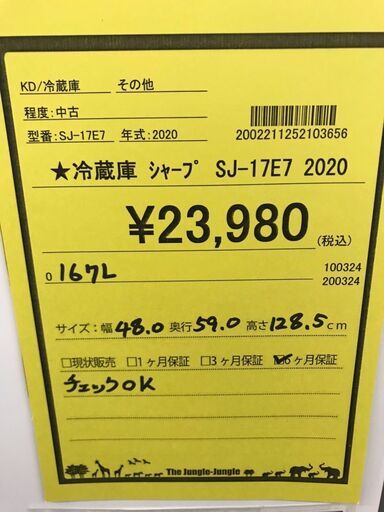 KD/冷蔵庫 その他
程度:中古
型番:SJ-17E7 年式:2020
2002211252103656
★冷蔵庫 ｼｬｰﾌﾟ SJ-17E7 2020
¥23,980 (税込)
0 167L
100324
200324
サイズ:幅48.0奥行59.0高さ128.5cm
□現状販売 □1ヶ月保証 □3ヶ月保証 ☑6ヶ月保証
チェックOK
The Jungle-Jungle